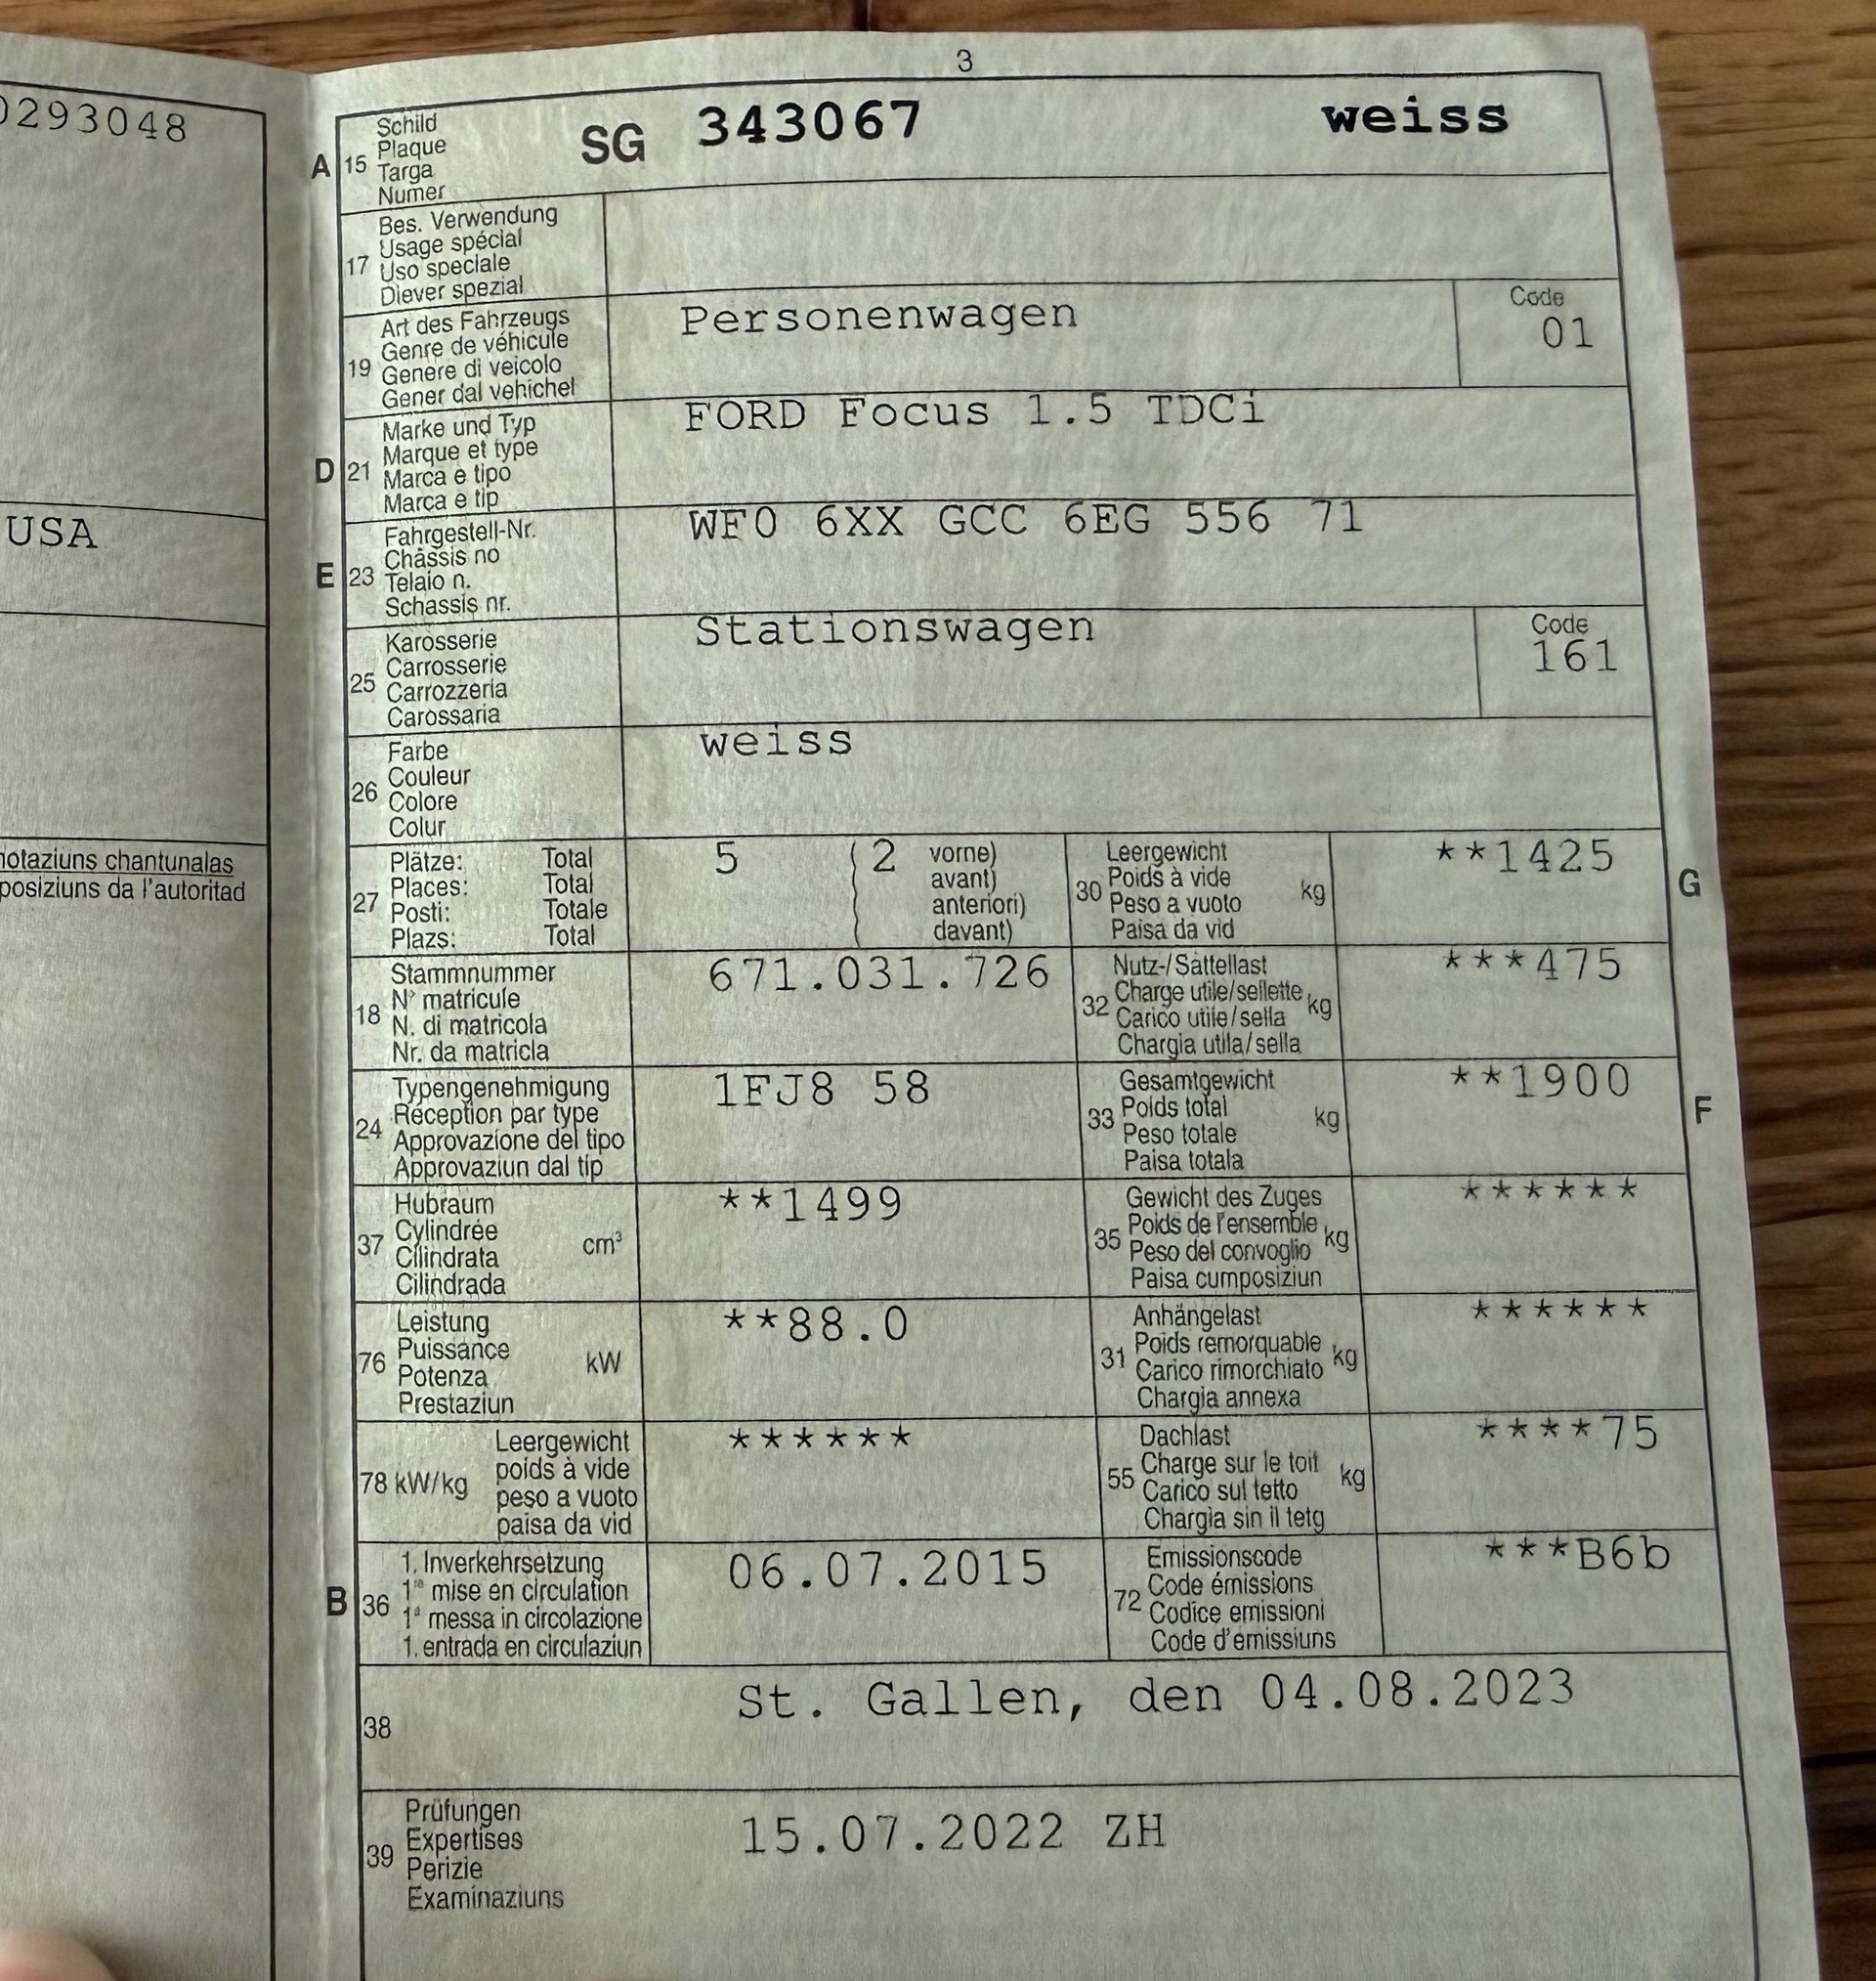 0293048
USA
notaziuns chantunalas
posiziuns da l'autoritad
3
A 15 Schild
Plaque
Targa
Numer
SG 343067 weiss
17 Bes. Verwendung
Usage spécial
Uso speciale
Diever spezial
19 Art des Fahrzeugs
Genre de véhicule
Genere di veicolo
Gener dal vehichel
Personenwagen
Code
01
D 21 Marke und Typ
Marque et type
Marca e tipo
Marca e tip
FORD Focus 1.5 TDCi
E 23 Fahrgestell-Nr.
Châssis no
Telaio n.
Schassis nr.
WF0 6XX GCC 6EG 556 71
25 Karosserie
Carrosserie
Carrozzeria
Carossaria
Stationswagen
Code
161
26 Farbe
Couleur
Colore
Colur
weiss
27 Plätze: Total
Places: Total
Posti: Totale
Plazs: Total
5 (2 vorne)
avant)
anteriori)
davant)
30 Leergewicht
Poids à vide
Peso a vuoto
Paisa da vid
kg
**1425
G
18 Stammnummer
N° matricule
N. di matricola
Nr. da matricla
671.031.726
32 Nutz-/Sattellast
Charge utile/sellette
Carico utile/sella
Chargia utila/sella
kg
***475
24 Typengenehmigung
Réception par type
Approvazione del tipo
Approvaziun dal tip
1FJ8 58
33 Gesamtgewicht
Poids total
Peso totale
Paisa totala
kg
**1900
F
37 Hubraum
Cylindrée
Cilindrata
Cilindrada
cm³
**1499
35 Gewicht des Zuges
Poids de l'ensemble
Peso del convoglio
Paisa cumposiziun
kg
******
76 Leistung
Puissance
Potenza
Prestaziun
kW
**88.0
31 Anhängelast
Poids remorquable
Carico rimorchiato
Chargia annexa
kg
******
78 kW/kg Leergewicht
poids à vide
peso a vuoto
paisa da vid
******
55 Dachlast
Charge sur le toit
Carico sul tetto
Chargia sin il tetg
kg
****75
B 36 1. Inverkehrsetzung
1re mise en circulation
1a messa in circolazione
1. entrada en circulaziun
06.07.2015
72 Emissionscode
Code émissions
Codice emissioni
Code d'emissiuns
***B6b
38
St. Gallen, den 04.08.2023
39 Prüfungen
Expertises
Perizie
Examinaziuns
15.07.2022 ZH